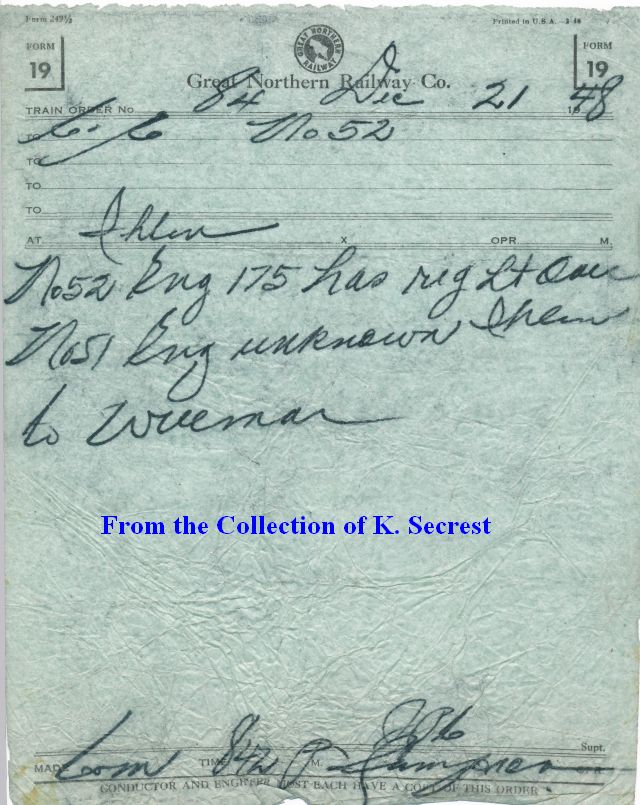 Form 249½ Printed in U.S.A. 3 48
FORM 19 GREAT NORTHERN RAILWAY FORM 19
Great Northern Railway Co.
TRAIN ORDER No. 84 Dec 21 1948
TO C&E No 52
TO
TO
TO
AT Ihlen X OPR. M.
No 52 Eng 175 has right over
No 51 Eng unknown Ihlen
to Willmar
From the Collection of K. Secrest
Supt.
MADE Com TIME 842 P M. OPR.
CONDUCTOR AND ENGINEER MUST EACH HAVE A COPY OF THIS ORDER